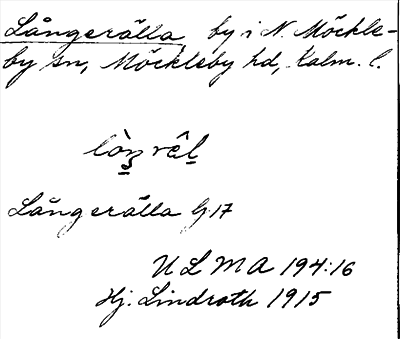 Långerälla by i N. Möckle-
by sn, Möckleby hd, Kalm. l.
Långerälla G17
ULMA 194:16
Hj. Lindroth 1915